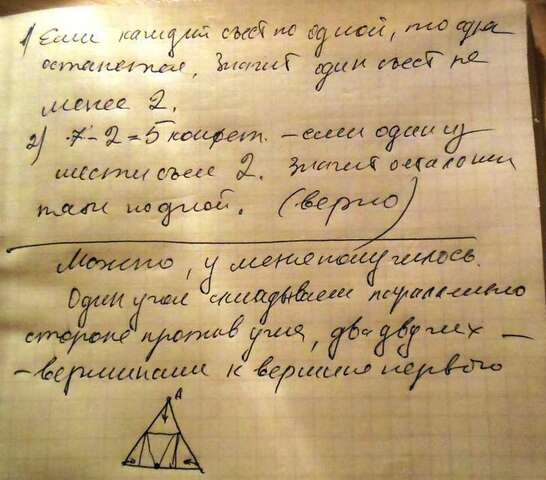 1) Если каждый съест по одной, то одна
останется, значит один съест не
менее 2.
2) 7-2=5 конфет. – если один из
шести съел 2. Значит остальные
пять по одной. (верно)
Можно, у меня получилось.
Один угол складываем параллельно
стороне против угла, два других –
– вершинами к вершине первого
A